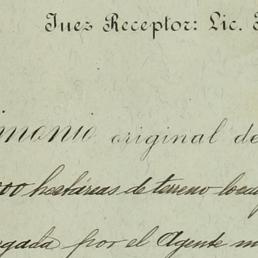 Juez Receptor: Lic.
imonio original de
00 hectáreas de terreno
gada por el Agente